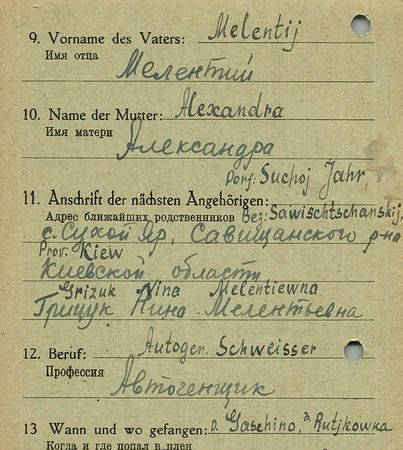 9. Vorname des Vaters: Melentij
Имя отца
Мелентий
10. Name der Mutter: Alexandra
Имя матери
Александра
Dorf: Suchoj Jahr,
11. Anschrift der nächsten Angehörigen:
Адрес ближайших родственников Bez: Sawischtschanskij,
с. Сухой Яр, Савищанского р-на
Prov. Kiew
Киевской области
Grizuk Nina Melentiewna
Грицук Нина Мелентьевна
12. Beruf: Autogen. Schweisser
Профессия
Автогенщик
13 Wann und wo gefangen: D. Gaschino, B. Rutjkowka
Когда и где попал в плен